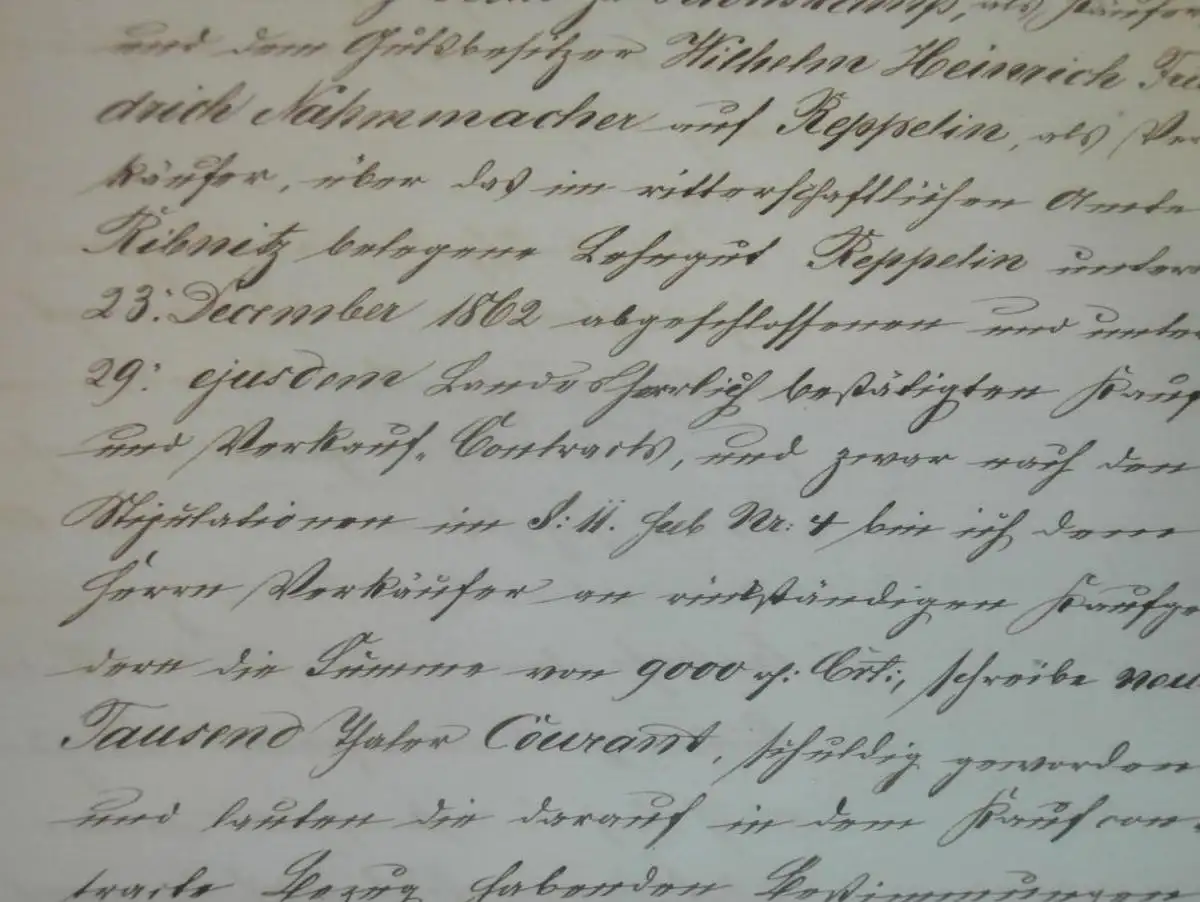 als Käufer
und dem Gutsbesitzer Wilhelm Heinrich Frie
drich Nahmmacher auf Reppelin, als Ver
käufer, über das im ritterschaftlichen Amte
Ribnitz belegene Lehngut Reppelin unter
23: December 1862 abgeschlossenen und unter
29: ejusdem Landesherrlich bestätigten Kauf
und Verkauf-Contracts, und zwar nach den
Stipulationen im §: 11. sub Nr: 4 bin ich dem
Herrn Verkäufer an rückständigen Kaufgel
dern die Summe von 9000 rh: Crt:, schreibe neu
Tausend Thaler Courant, schuldig geworden
und lauten die darauf in dem Kaufcon-
tracte Bezug habenden Bestimmungen